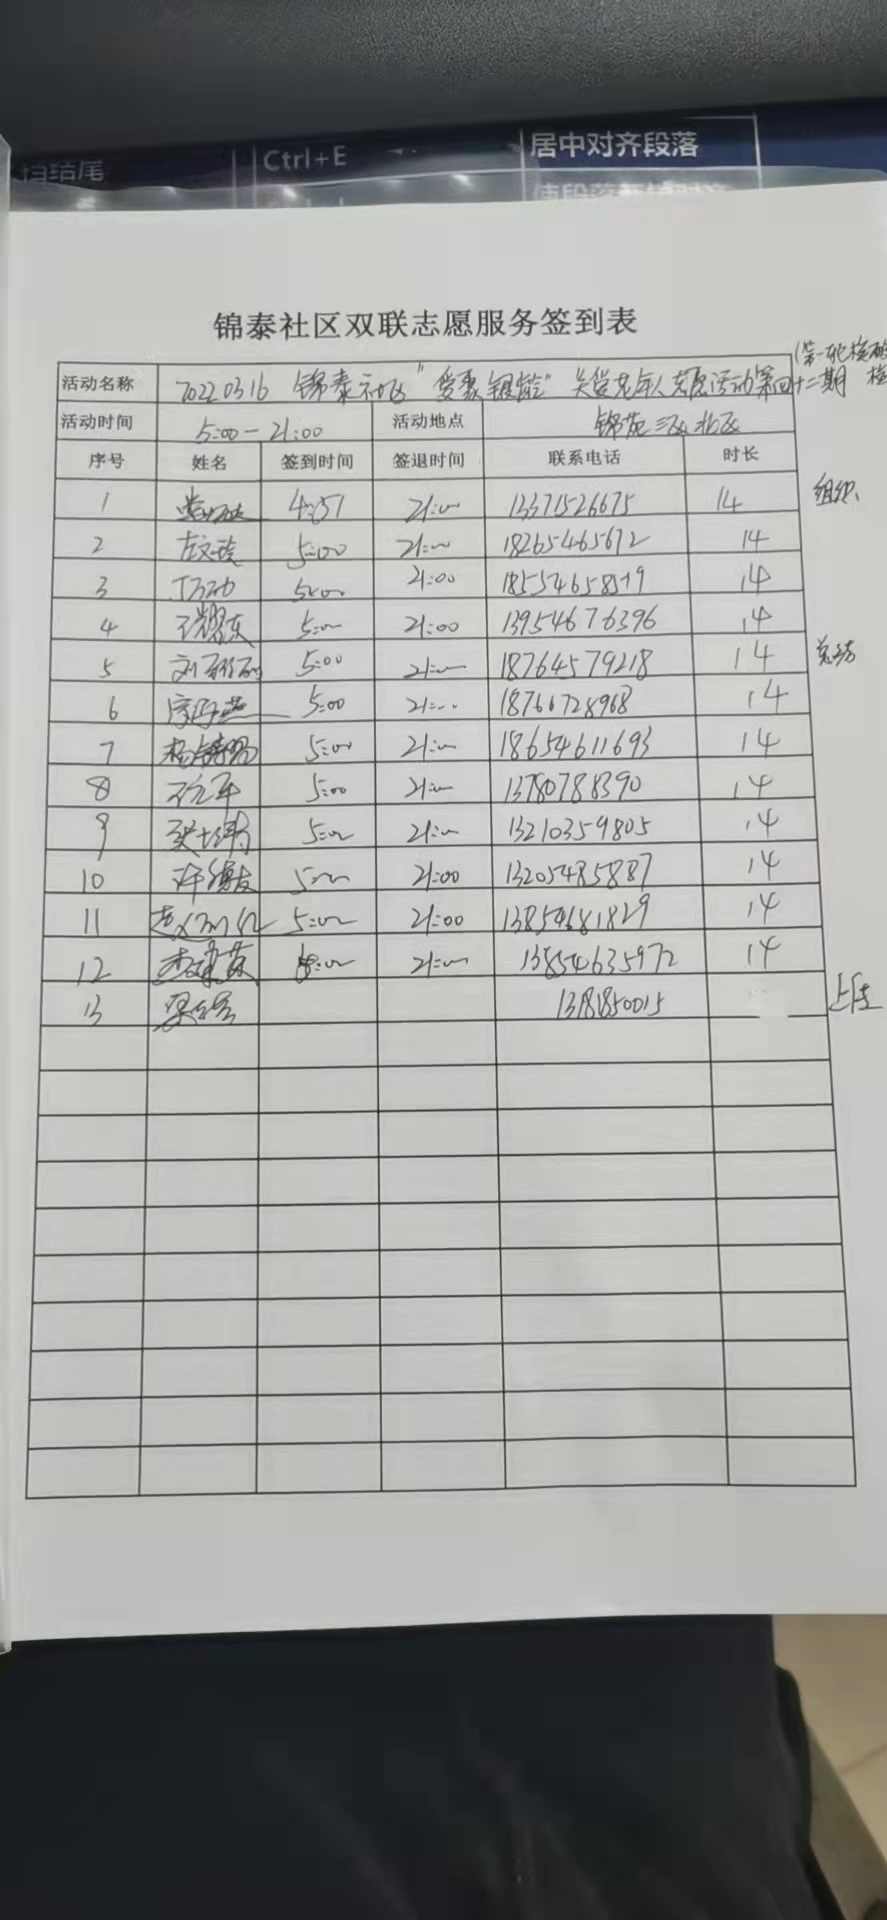 挡结尾 Ctrl+E 居中对齐段落
锦泰社区双联志愿服务签到表
(第一轮核酸检
活动名称 20220316 锦泰社区"爱聚银龄"关爱老年人志愿活动第四十二期
活动时间 5:00-21:00 活动地点 锦苑三区北区
序号 姓名 签到时间 签退时间 联系电话 时长
1 4:51 21:00 13371526675 14 组织
2 5:00 21:00 18265465672 14
3 5:00 21:00 14
4 王耀东 5:00 21:00 13954676396 14
5 5:00 21:00 18764579218 14 总结
6 5:00 21:00 18766728968 14
7 5:00 21:00 18654611693 14
8 5:00 21:00 13780788390 14
9 5:00 21:00 13210359805 14
10 5:00 21:00 13205485887 14
11 5:00 21:00 13854681829 14
12 5:00 21:00 13854635972 14
13 13181850015 上传